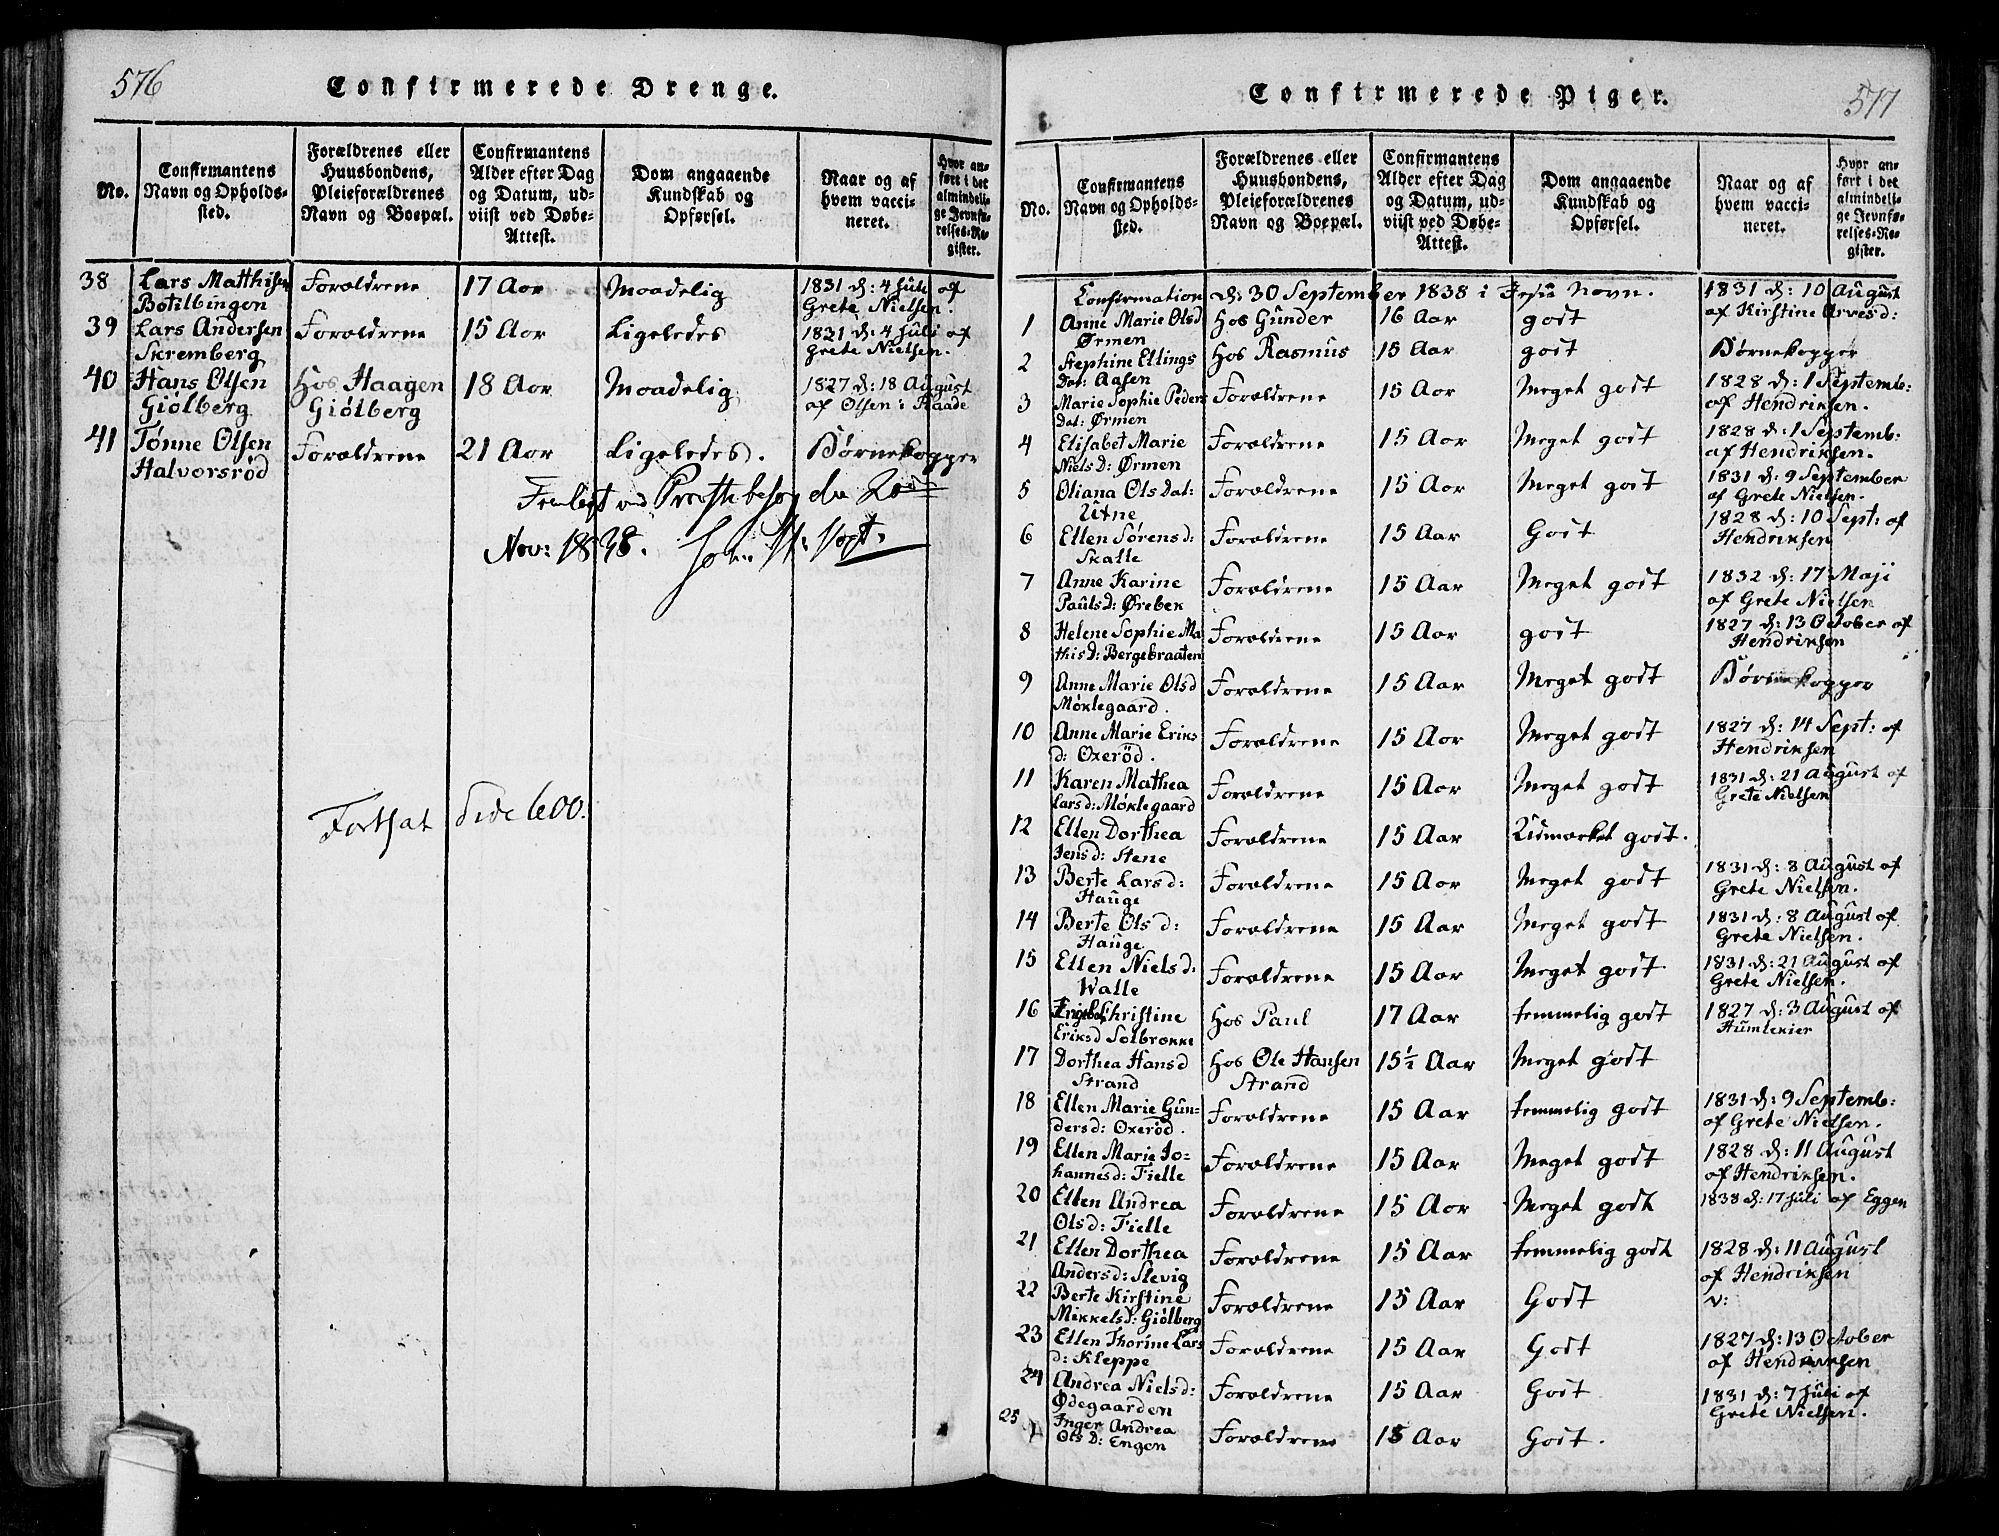 576
Confirmerede Drenge.
No.
Confirmantens
Navn og Opholds-
sted.
Forældrenes eller
Huusbondens,
Pleieforældrenes
Navn og Boepæl.
Confirmantens
Alder efter Dag
og Datum, ud-
viist ved Døbe-
Attest.
Dom angaaende
Kundskab og
Opførsel.
Naar og af
hvem vacci-
neret.
Hvor an-
ført i det
almindeli-
ge Jevnfø-
relses-Re-
gister.
38 Lars Matthisen Forældrene 17 Aar Maadelig 1831 d: 4 Juli af
Botilbingen Grete Nielsen.
39 Lars Andersen Forældrene 15 Aar Ligeledes 1831 d: 4 Juli af
Skremberg Grete Nielsen.
40 Hans Olsen Hos Haagen 18 Aar Maadelig 1827 d: 18 August
Giölberg Giölberg af Olsen i Raade
41 Tønne Olsen Forældrene 21 Aar Ligeledes. Børnekopper
Halvorsröd
Fremlagt ved Præstebesøg den 20de
Nov: 1838.
Fortsat Side 600.
Confirmerede Piger.
577
No.
Confirmantens
Navn og Opholds-
sted.
Forældrenes eller
Huusbondens,
Pleieforældrenes
Navn og Boepæl.
Confirmantens
Alder efter Dag
og Datum, ud-
viist ved Døbe-
Attest.
Dom angaaende
Kundskab og
Opførsel.
Naar og af
hvem vacci-
neret.
Hvor an-
ført i det
almindeli-
ge Jevnfø-
relses-Re-
gister.
Confirmation d: 30 September 1838 i Jesu Navn.
1 Anne Marie Olsd Hos Gunder 16 Aar godt 1831 d: 10 August
Ørmen af Kirstine Arvesd:
2 Stephine Ellings Hos Rasmus 15 Aar godt Børnekopper
Dat: Aasen
3 Marie Sophie Peders Forældrene 15 Aar Meget godt 1828 d: 1 Septemb:
Dat: Ørmen af Hendriksen.
4 Elisabet Marie Forældrene 15 Aar Meget godt 1828 d: 1 Septemb:
Niels d: Ørmen af Hendriksen.
5 Oliana Ols Dat: Forældrene 15 Aar Meget godt 1831 d: 9 September
Utne af Grete Nielsen.
6 Ellen Sørens d: Forældrene 15 Aar Godt 1828 d: 10 Sept: af
Skalle Hendriksen
7 Anne Karine Forældrene 15 Aar Meget godt 1832 d: 17 Maji
Pauls d: Ørebek af Grete Nielsen
8 Helene Sophie Ma Forældrene 15 Aar godt 1827 d: 13 October af
this d: Bergebraaten Hendriksen
9 Anne Marie Olsd Forældrene 15 Aar Meget godt Børnekopper
Møklegaard.
10 Anne Marie Eriks Forældrene 15 Aar Meget godt 1827 d: 14 Sept: af
d: Oxeröd. Hendriksen
11 Karen Mathea Forældrene 15 Aar Meget godt 1831 d: 21 August af
Lars d: Møklegaard Grete Nielsen
12 Ellen Dorthea Forældrene 15 Aar Udmærket godt.
Jens d: Stene
13 Berte Lars d: Forældrene 15 Aar Meget godt 1831 d: 8 August af
Hauge Grete Nielsen.
14 Berte Ols d: Forældrene 15 Aar Meget godt 1831 d: 8 August af
Hauge Grete Nielsen.
15 Ellen Niels d: Forældrene 15 Aar Meget godt 1831 d: 21 August af
Walle Grete Nielsen.
16 Christine Hos Paul 17 Aar temmelig godt 1827 d: 3 August af
Eriksd Solbrække Humlekier
17 Dorthea Hansd Hos Ole Hansen 15½ Aar Meget godt
Strand Strand
18 Ellen Marie Gun- Forældrene 15 Aar temmelig godt 1831 d: 9 Septemb:
ders d: Oxeröd. af Grete Nielsen.
19 Ellen Marie Jo- Forældrene 15 Aar Meget godt 1828 d: 11 August
hannes d: Fielle af Hendriksen.
20 Ellen Andrea Forældrene 15 Aar Meget godt 1838 d: 17 Juli af Eggen
Ols d: Fielle
21 Ellen Dorthea Forældrene 15 Aar temmelig godt 1828 d: 11 August
Anders d: Slevig af Hendriksen
22 Berte Kirstine Forældrene 15 Aar Godt v:
Mikkels d: Giölberg
23 Ellen Thorine Lars Forældrene 15 Aar Godt 1827 d: 13 October
d: Kleppe af Hendriksen
24 Andrea Niels d: Forældrene 15 Aar Godt 1831 d: 7 Juli af
Ødegaarden Grete Nielsen.
25 Inger Andrea Forældrene 15 Aar Godt.
Ols D: Engen